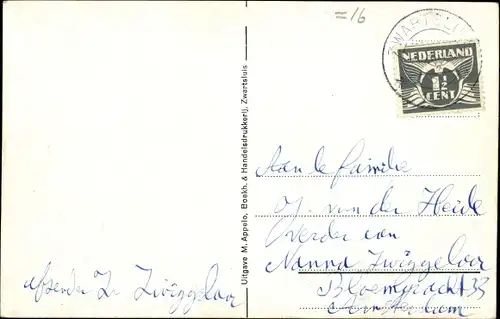 =16
ZWARTSLUIS
NEDERLAND
1½
CENT
Uitgave M. Appelo, Boekh. & Handelsdrukkerij, Zwartsluis
Aan de familie
J. van der Heide
Verder aan
Nanna Zwiggelaar
Bloemgracht 33
Amsterdam
afzender Zwiggelaar